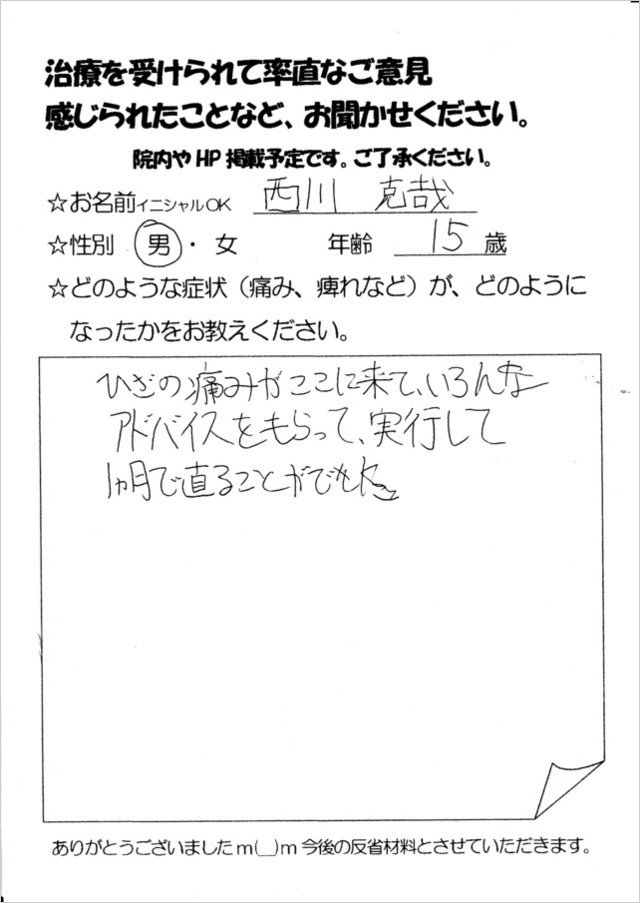 治療を受けられて率直なご意見
感じられたことなど、お聞かせください。
院内や HP 掲載予定です。ご了承ください。
☆お名前イニシャルOK 西川 克哉
☆性別 男・女 年齢 15 歳
☆どのような症状（痛み、痺れなど）が、どのように
なったかをお教えください。
ひざの痛みがここに来て、いろんな
アドバイスをもらって、実行して
1ヵ月で直ることができた
ありがとうございましたm(__)m今後の反省材料とさせていただきます。